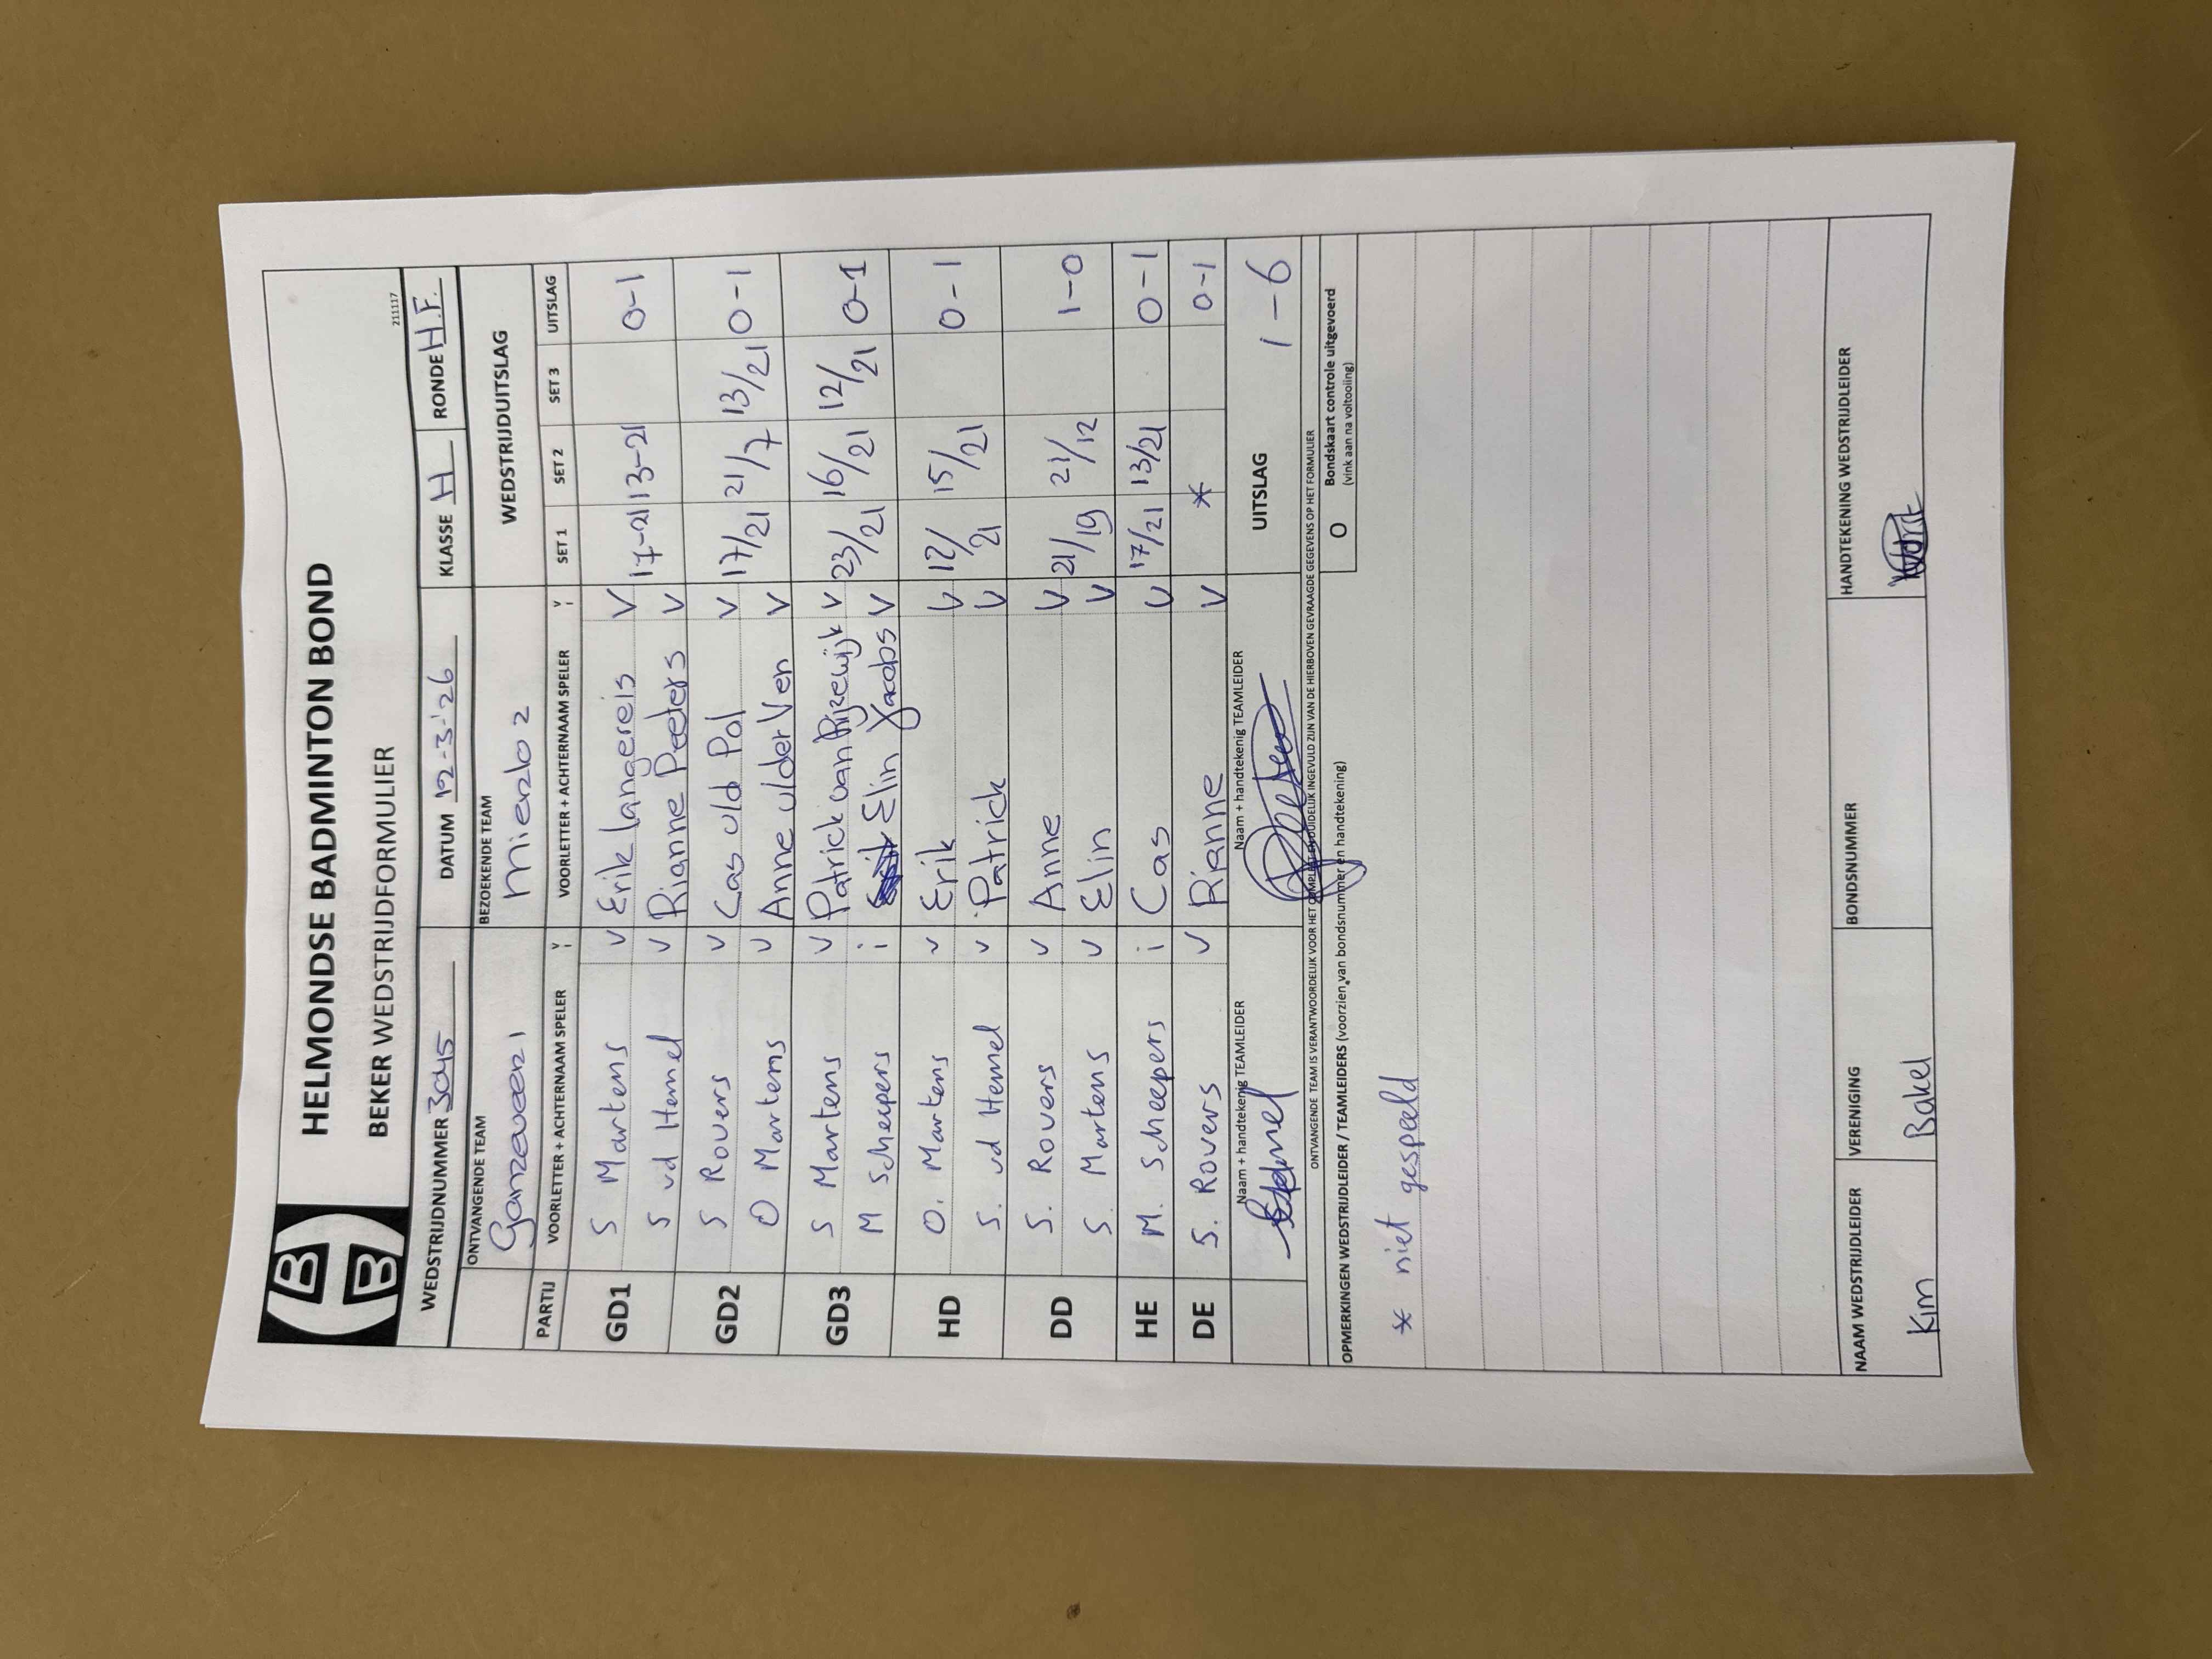 HELMONDSE BADMINTON BOND
BEKER WEDSTRIJDFORMULIER
211117
WEDSTRIJDNUMMER 3045 DATUM 12-3-'26 KLASSE H RONDE H.F.
ONTVANGENDE TEAM BEZOEKENDE TEAM WEDSTRIJDUITSLAG
Ganzeveer 1 Mierlo 2
PARTIJ VOORLETTER + ACHTERNAAM SPELER V/I VOORLETTER + ACHTERNAAM SPELER V/I SET 1 SET 2 SET 3 UITSLAG
GD1 S Martens V Erik Langereis V 17-21 13-21 0-1
S vd Hemel V Rianne Peeters V
GD2 S Rouvers V Cas vld Pol V 17/21 21/7 13/21 0-1
O Martens V Anne vlder Ven V
GD3 S Martens V Patrick van Rijzewijk V 23/21 16/21 12/21 0-1
M Scheepers i Elin Jacobs V
HD O. Martens V Erik V 12/21 15/21 0-1
S. vd Hemel V Patrick V
DD S. Rouvers V Anne V 21/19 21/12 1-0
S. Martens V Elin V
HE M. Scheepers i Cas V 17/21 13/21 0-1
DE S. Rovers V Rianne V * 0-1
Naam + handtekenig TEAMLEIDER Naam + handtekenig TEAMLEIDER UITSLAG 1-6
ONTVANGENDE TEAM IS VERANTWOORDELIJK VOOR HET COMPLEET EN DUIDELIJK INGEVULD ZIJN VAN DE HIERBOVEN GEVRAAGDE GEGEVENS OP HET FORMULIER
OPMERKINGEN WEDSTRIJDLEIDER / TEAMLEIDERS (voorzien van bondsnummer en handtekening) O Bondskaart controle uitgevoerd
(vink aan na voltooiing)
* niet gespeeld
NAAM WEDSTRIJDLEIDER VERENIGING BONDSNUMMER HANDTEKENING WEDSTRIJDLEIDER
Kim Bakel